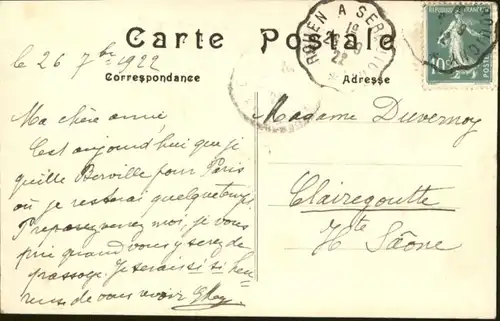 Carte Postale
Correspondance
Adresse
ROUEN A SERQU
18
26 9
22
REPUBLIQUE FRANÇAISE
10c
le 26 7bre 1922
Ma chère amie,
C'est aujourd'hui que je
quitte Berville pour Paris
où je resterai quelque temps
Prevenez moi, je vous
prie quand vous y serez de
passage. Je serais si si heu-
reuse de vous revoir
Madame Duvernoy
Clairegoutte
Hte Saône